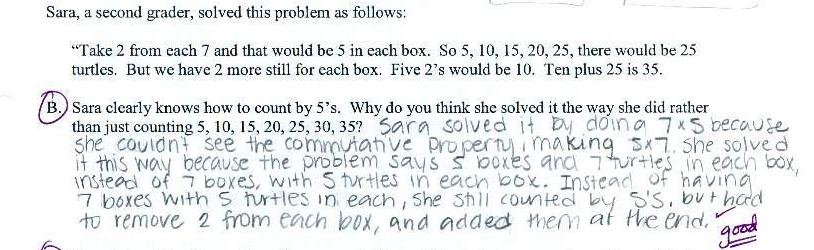 Sara, a second grader, solved this problem as follows:
"Take 2 from each 7 and that would be 5 in each box. So 5, 10, 15, 20, 25, there would be 25
turtles. But we have 2 more still for each box. Five 2's would be 10. Ten plus 25 is 35.
B. Sara clearly knows how to count by 5's. Why do you think she solved it the way she did rather
than just counting 5, 10, 15, 20, 25, 30, 35? Sara solved it by doing 7x5 because
she couldn't see the commutative property, making 5x7. She solved
it this way because the problem says 5 boxes and 7 turtles in each box,
instead of 7 boxes, with 5 turtles in each box. Instead of having
7 boxes with 5 turtles in each, she still counted by 5's, but had
to remove 2 from each box, and added them at the end.
good